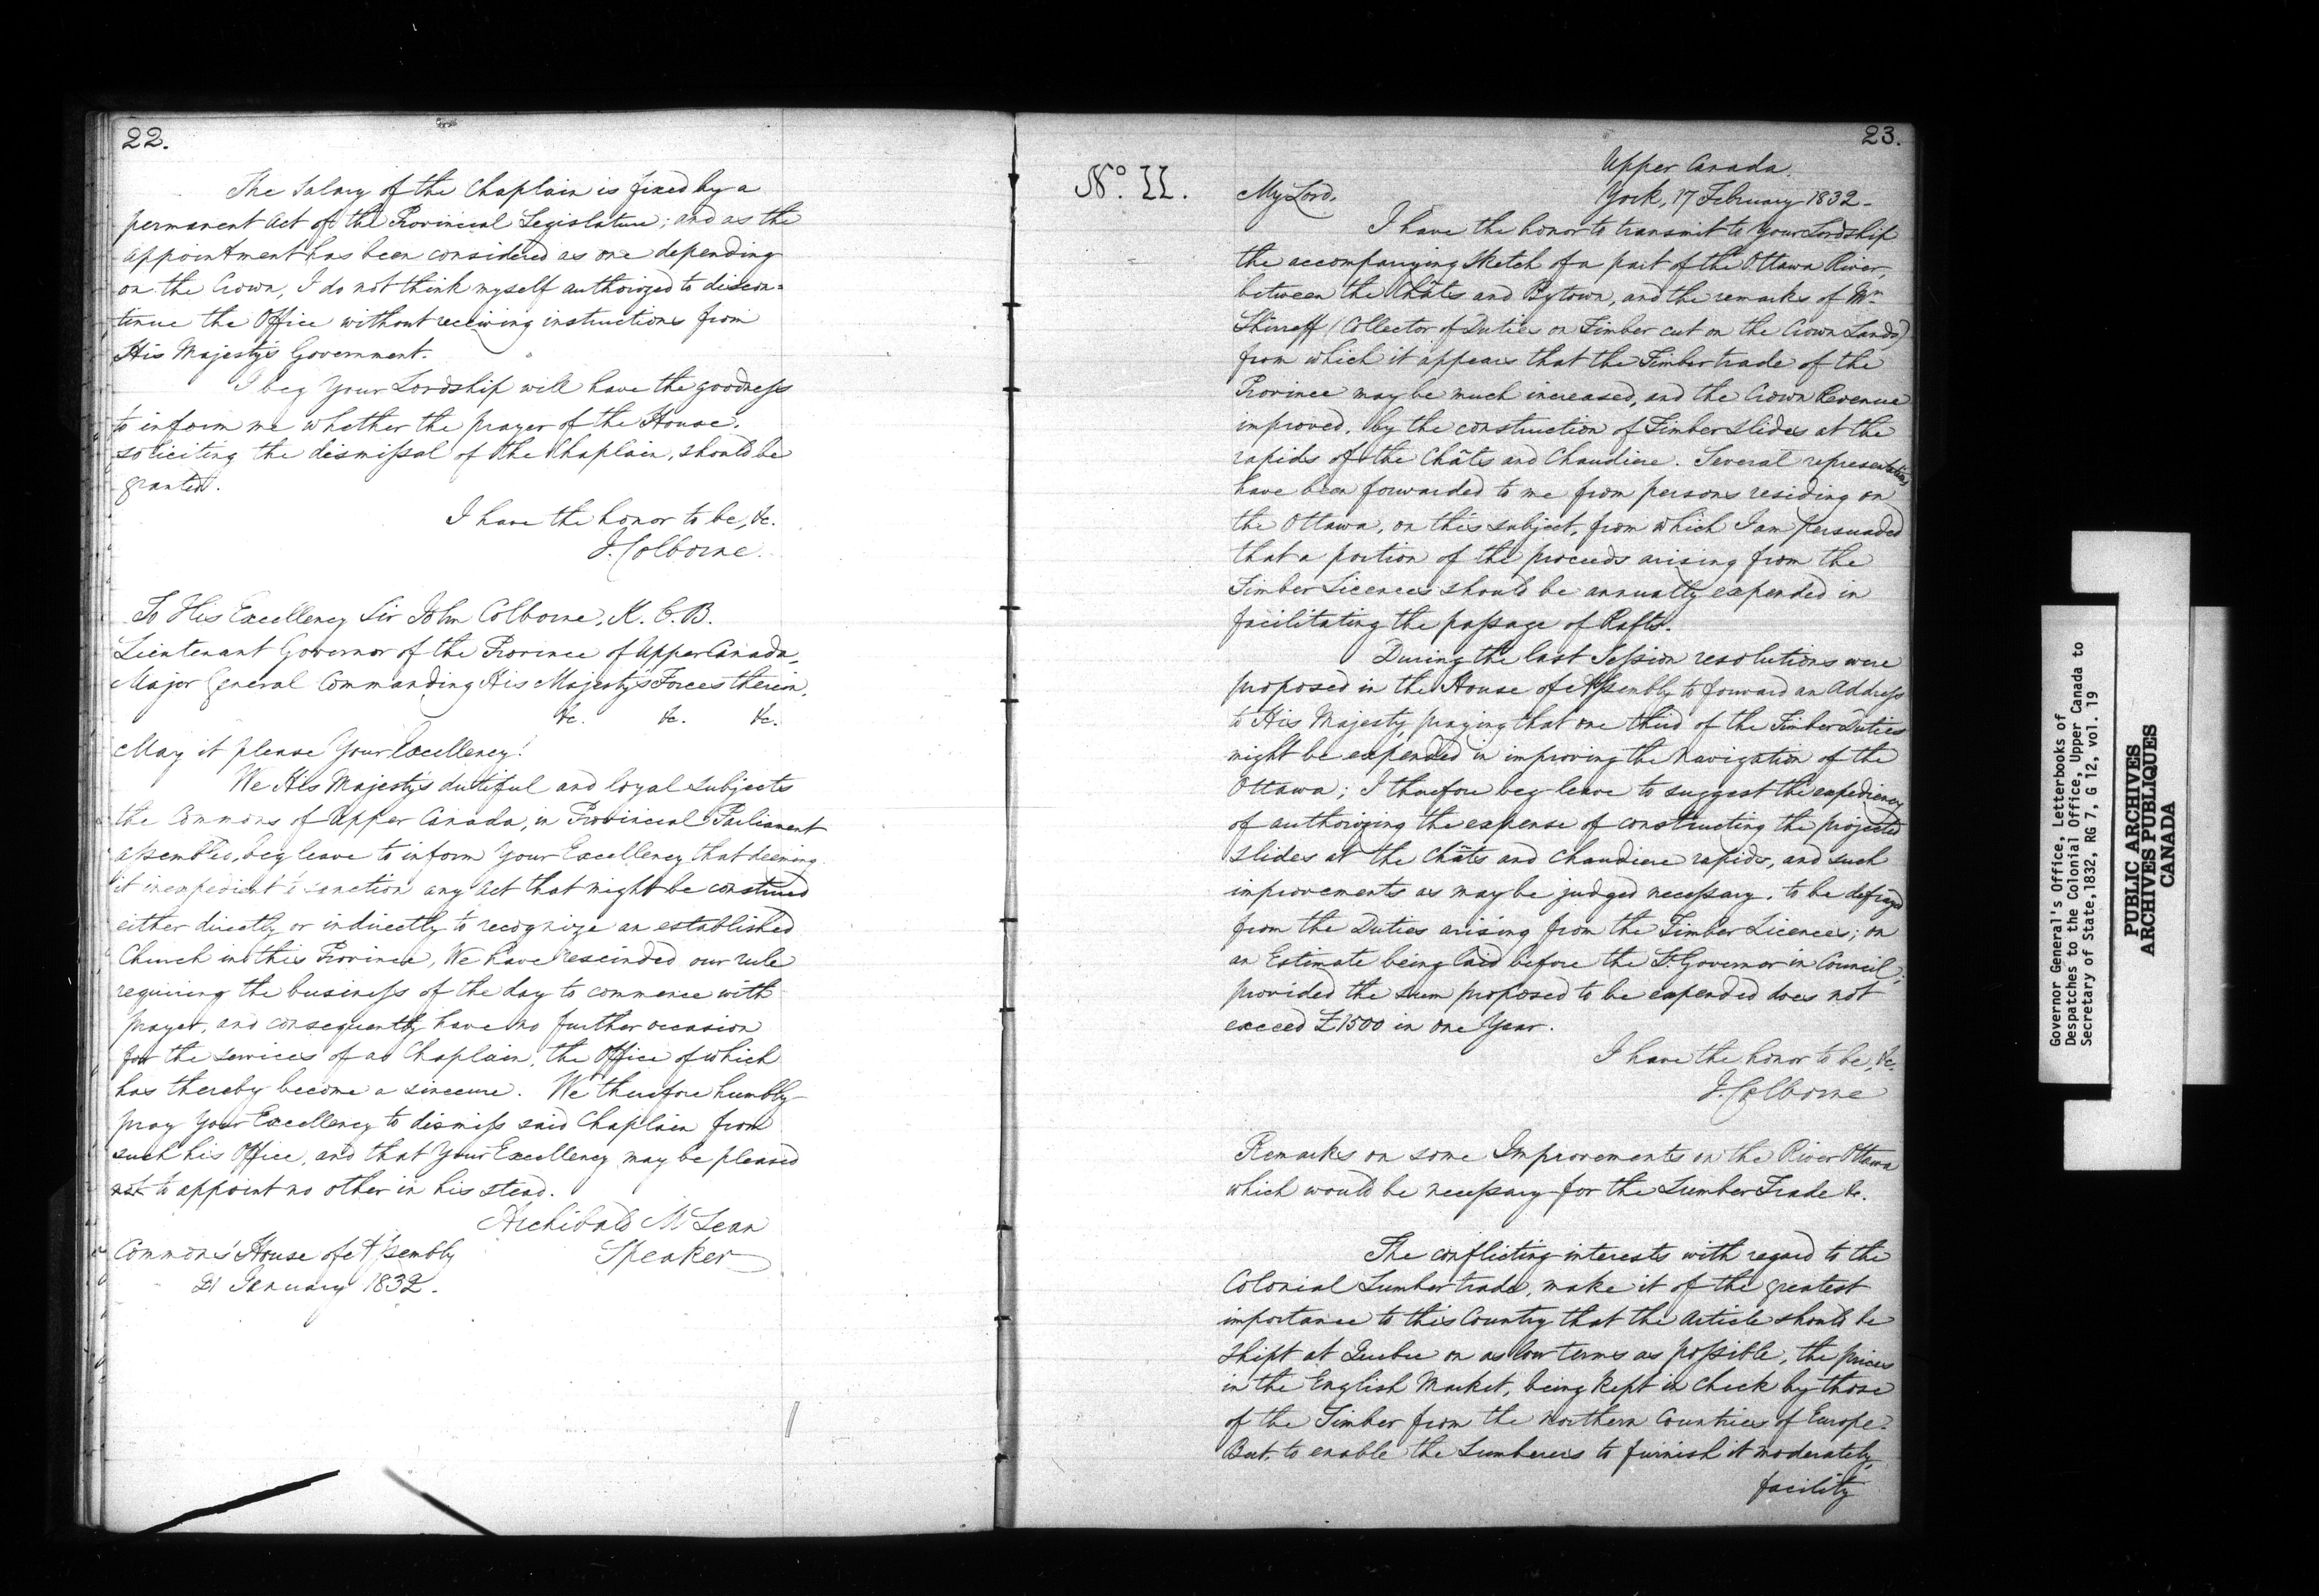 22.
The Salary of the Chaplain is fixed by a
permanent Act of the Provincial Legislature; and as the
appointment has been considered as one depending
on the Crown, I do not think myself authorized to discon=
tinue the Office without receiving instructions from
His Majesty's Government.
I beg Your Lordship will have the goodness
to inform me whether the prayer of the House,
soliciting the dismissal of the Chaplain, should be
granted.
I have the honor to be, &c.
J. Colborne.
To His Excellency Sir John Colborne, K. C. B.
Lieutenant Governor of the Province of Upper Canada,
Major General Commanding His Majesty's Forces therein,
&c. &c. &c.
May it please Your Excellency!
We His Majesty's dutiful and loyal subjects
the Commons of Upper Canada, in Provincial Parliament
assembled, beg leave to inform Your Excellency that deeming
it inexpedient to sanction any act that might be construed
either directly or indirectly to recognize an established
Church in this Province, We have rescinded our rule
requiring the business of the day to commence with
prayer, and consequently have no further occasion
for the services of a Chaplain, the Office of which
has thereby become a sinecure. We therefore humbly
pray Your Excellency to dismiss said Chaplain from
such his Office, and that Your Excellency may be pleased
not to appoint no other in his stead.
Archibald McLean
Commons' House of Assembly Speaker
21 January 1832.
23.
Upper Canada.
No. 11. My Lord, York, 17 February 1832.
I have the honor to transmit to Your Lordship
the accompanying sketch of a part of the Ottawa River,
between the Châts and Bytown, and the remarks of Mr
Shirreff (Collector of Duties on Timber cut on the Crown Lands)
from which it appears that the Timber trade of the
Province may be much increased, and the Crown Revenue
improved, by the construction of Timber slides at the
rapids of the Châts and Chaudiere. Several representations
have been forwarded to me from persons residing on
the Ottawa, on this subject, from which I am persuaded
that a portion of the proceeds arising from the
Timber Licences should be annually expended in
facilitating the passage of Rafts.
During the last Session resolutions were
proposed in the House of Assembly to forward an Address
to His Majesty, praying that one third of the Timber Duties
might be expended in improving the navigation of the
Ottawa; I therefore beg leave to suggest the expediency
of authorizing the expense of constructing the projected
slides at the Châts and Chaudiere rapids, and such
improvements as may be judged necessary, to be defrayed
from the Duties arising from the Timber Licences; on
an Estimate being laid before the Lt Governor in Council;
provided the sum proposed to be expended does not
exceed £1500 in one Year.
I have the honor to be, &c.
J. Colborne
Remarks on some Improvements on the River Ottawa
which would be necessary for the Lumber Trade &c.
The conflicting interests with regard to the
Colonial Lumber trade, make it of the greatest
importance to this Country that the Article should be
shipt at Quebec on as low terms as possible, the prices
in the English Market, being kept in check by those
of the Timber from the Northern Countries of Europe.
But, to enable the Lumberers to furnish it moderately,
facility
Governor General's Office, Letterbooks of
Despatches to the Colonial Office, Upper Canada to
Secretary of State,1832, RG 7, G 12, vol. 19
PUBLIC ARCHIVES
ARCHIVES PUBLIQUES
CANADA